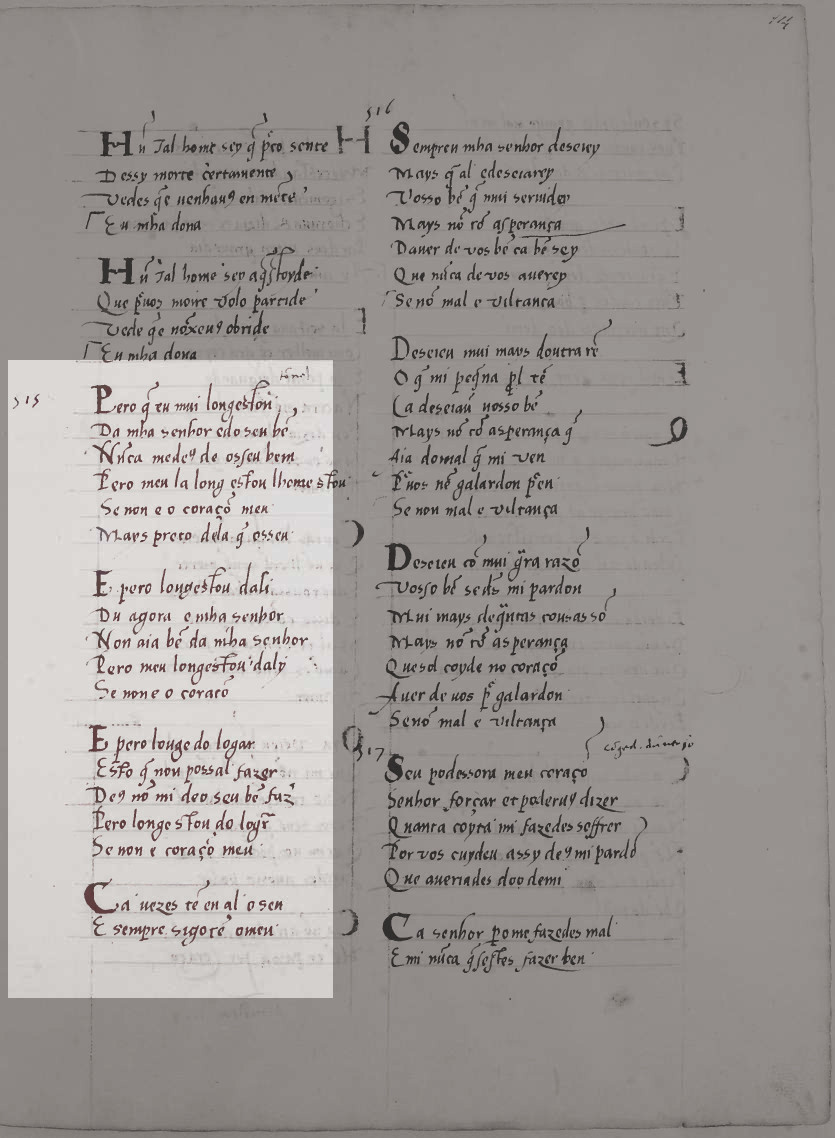 714
Hũ Jal home sey q̃ p̃to sente
Dessy morte çertamente
Vedes q̃e uenhaus en mẽte
Eu mha dona
Hũ Jal home sey aq̃stoyde
Que p̃uos moire volo partide
Vede q̃e nõxeu9 obride
Eu mha dona
tornel
515
Pero q̃ eu mui long estou
Da mha senhor edo seu bẽ
Nũca mede9 de osseu bem
Pero meu la long estou lhome stou
Se non e o coraçõ meu
Mays preto dela q̃ osseu
E pero long estou dali
Du agora e mha senhor
Non aia bẽ da mha senhor
Pero meu long estou daly
Se non e o coraçõ
E pero louge do logar
Esto q̃ nou possal fazer
De9 nõ mi deo seu bẽ faz̃
Pero longe stou do logr̃
Se non e coraçõ meu
Ca uezes tẽ en al o sen
E sempre sigotẽ omeu
516
Sempreu mha senhor deseiey
Mays q̃ al edeseiarey
Vosso bẽ q̃ mui seruidey
Mays nõ cõ asperança
Dauer de vos bẽ ca bẽ sey
Que nũca de vos auerey
Se nõ mal e viltança
Deseieu mui mays doutra rẽ
O q̃ mi peq̃na p̃l tẽ
Ca deseiau uosso bẽ
Mays nõ cõ asperança q̃
Aia domal q̃ mi ven
P̃uos nẽ galardon p̃en
Se non mal e viltança
Deseieu cõ mui g̃ra razõ
Vosso bẽ se ds̃ mi pardon
Mui mays deq̃ntas cousas sõ
Mays nõ cõ asperança
Quesol coyde no coraçõ
Auer de uos p̃ galardon
Se nõ mal e viltança
517
Seu podessora meu coraço
Senhor forçar et poderu9 dizer
Quanta coyta mi fazedes soffrer
Por vos cuydeu assy de9 mi pardõ
Que aueriades doo demi
Ca senhor pome fazedes mal
E mi nũca q̃sestes fazer ben